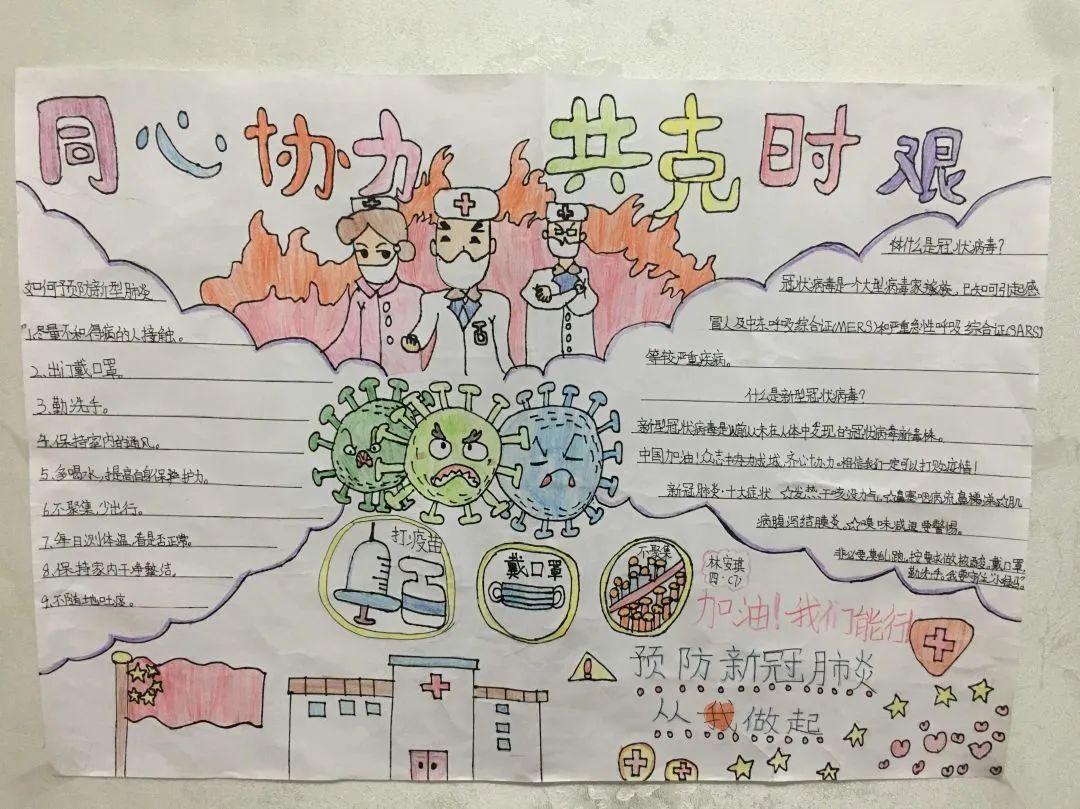 同心协力 共克时艰
如何预防新型肺炎
1.尽量不和得病的人接触。
2.出门戴口罩。
3.勤洗手。
4.保持室内的通风。
5.多喝水,提高自身保护力。
6.不聚集,少出行。
7.每日测体温,看是否正常。
8.保持家内干净整洁。
9.不随地吐痰。
什么是冠状病毒?
冠状病毒是一个大型病毒家族,已知可引起感
冒人及中东呼吸综合证(MERS)和严重急性呼吸综合证(SARS)
等较严重疾病。
什么是新型冠状病毒?
新型冠状病毒是以前从未在人体中发现的冠状病毒新毒株。
中国加油!众志成城,齐心协力。相信我们一定可以打败疫情!
新冠肺炎十大症状 ☆发热干咳没力气。☆鼻塞咽痛流鼻涕
病腹泻结膜炎。☆嗅味减退要警惕。
非必要莫乱跑,按要求做核酸,戴口罩,
勤洗手,我要守住"小绿码"
打疫苗
戴口罩
不聚集
林安琪
四·(7)
加油!我们能行!
预防新冠肺炎
从我做起